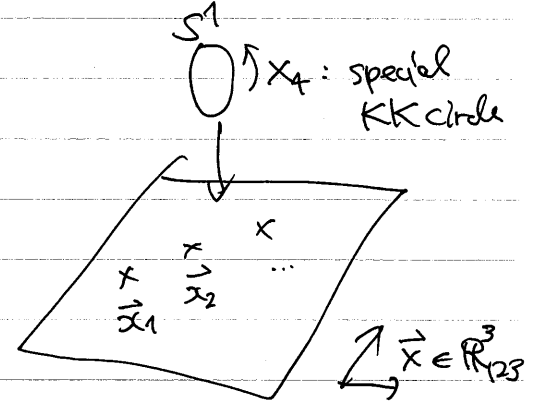 S¹
x₄ : special
KK circle
x x x
x⃗₁ x⃗₂ ...
x⃗ ∈ ℝ³₁₂₃